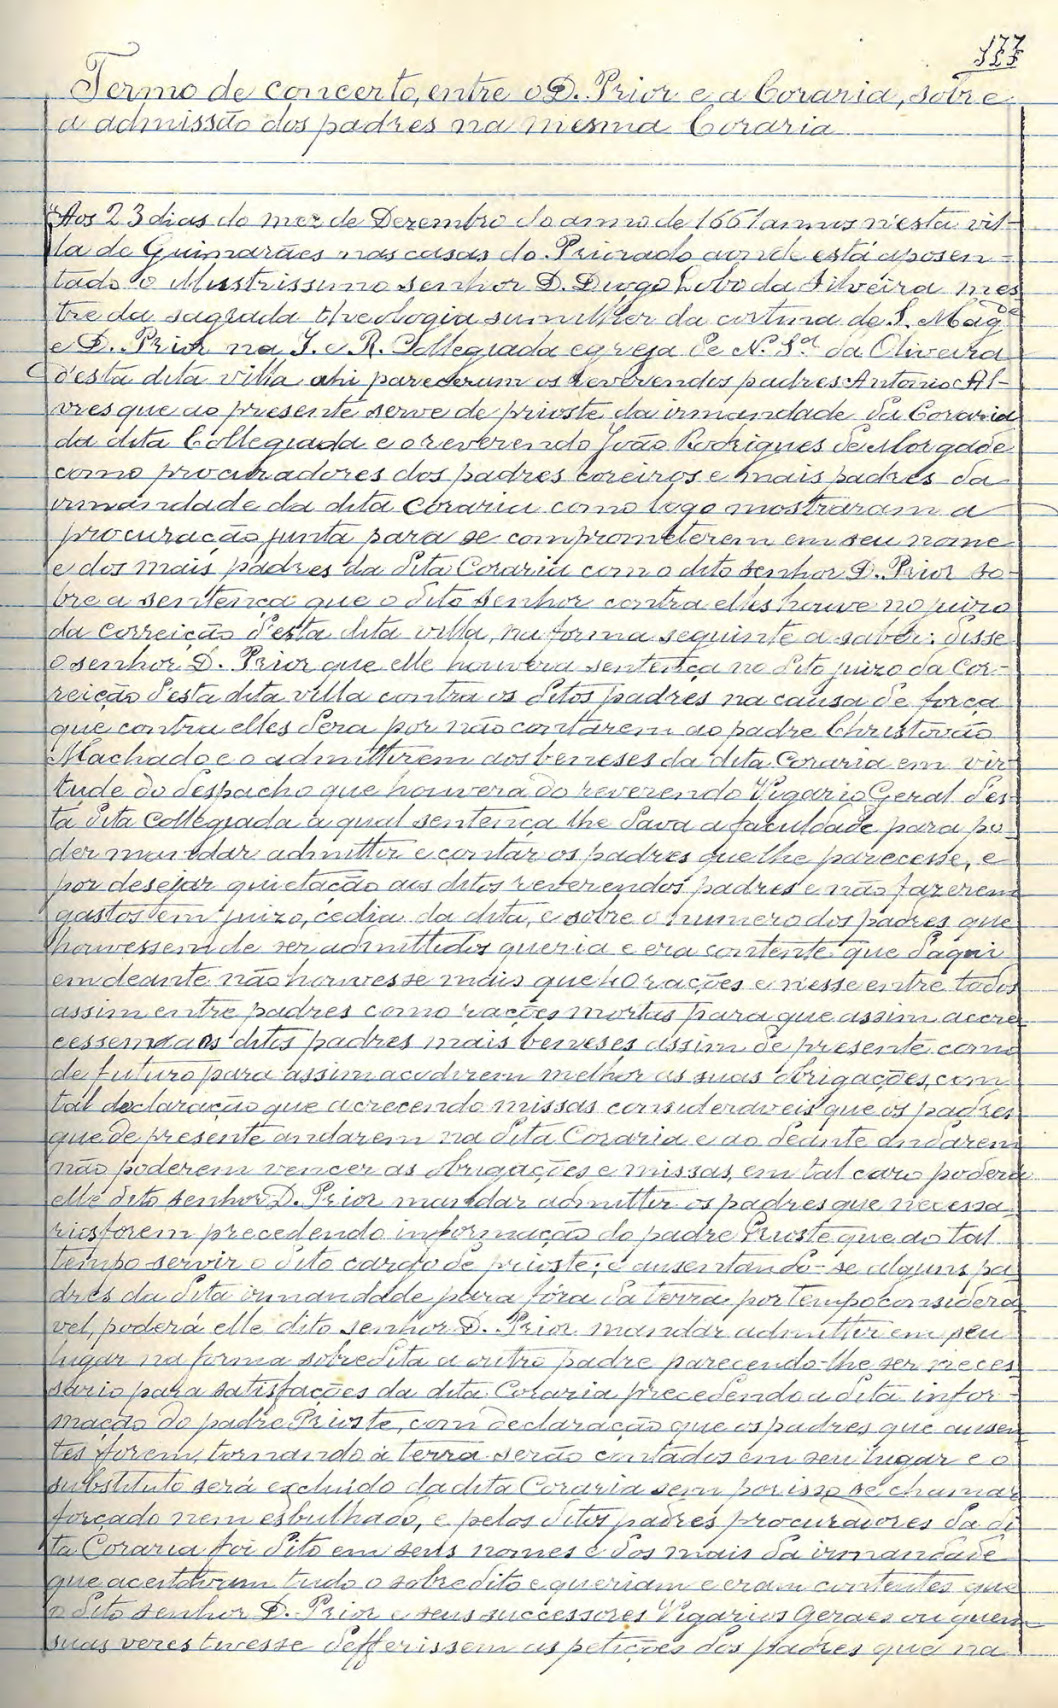 177
Termo de concerto, entre o D. Prior e a Coraria, sobre
a admissão dos padres na mesma Coraria
"Aos 23 dias do mez de Dezembro do anno de 1661 annos n'esta vil-
la de Guimarães nas casas do Priorado aonde está aposen-
tado o Illustrissimo senhor D. Diogo Lobo da Silveira mes
tre da sagrada theologia sumilher da cortina de S. Mag.de
e D. Prior na I. e R. Collegiada egreja de N.ª S.ra da Oliveira
d'esta dita villa ahi pareceram os reverendos padres Antonio Al-
vres que ao presente serve de prioste da irmandade da Coraria
da dita Collegiada e o reverendo João Rodrigues de Morgade
como procuradores dos padres coreiros e mais padres da
irmandade da dita Coraria como logo mostraram a
procuração junta para se comprometerem em seu nome
e dos mais padres da dita Coraria com o dito senhor D. Prior so-
bre a sentença que o dito senhor contra elles houve no juizo
da correição d'esta dita villa, na forma seguinte a saber: disse
o senhor D. Prior que elle houvera sentença no dito juizo da cor-
reição d'esta dita villa contra os ditos padres na causa de força
que contra elles dera por não contarem ao padre Christovão
Machado e o admittirem aos beneses da dita Coraria em vir-
tude do despacho que houvera do reverendo Vigario Geral d'es-
ta dita Collegiada a qual sentença lhe dava a faculdade para po-
der mandar admittir e contar os padres que lhe parecesse, e
por desejar quietação aos ditos reverendos padres e não fazerem
gastos em juizo, cedia da dita, e sobre o numero dos padres que
houvessem de ser admittidos queria e era contente que d'aqui
em deante não houvesse mais que 40 rações e n'esse entre todos
assim entre padres como rações mortas para que assim accre
cessem aos ditos padres mais beneses assim de presente como
de futuro para assim acudirem melhor as suas obrigações, com
tal declaração que acrecendo missas consideraveis que os padres
que de presente andarem na dita Coraria e ao deante andarem
não poderem vencer as obrigações e missas, em tal caso poderá
elle dito senhor D. Prior mandar admittir os padres que necessa-
rios forem precedendo informação do padre Prioste que ao tal
tempo servir o dito cargo de prioste; e ausentando-se alguns pa
dres da dita irmandade para fóra da terra por tempo considera
vel, poderá elle dito senhor D. Prior mandar admittir em seu
lugar na forma sobredita a outro padre parecendo-lhe ser neces
sario para satisfações da dita Coraria precedendo a dita infor-
mação do padre Prioste, com declaração que os padres que ausen
tes forem, tornando à terra serão contados em seu lugar e o
substituto será excluido da dita Coraria sem por isso se chamar
forçado nem esbulhado, e pelos ditos padres procuradores da di
ta Coraria foi dito em seus nomes e dos mais da irmandade
que aceitavam tudo o sobredito e queriam e eram contentes que
o dito senhor D. Prior e seus successores Vigarios Geraes ou quem
suas vezes tivesse defferissem as petições dos padres que na